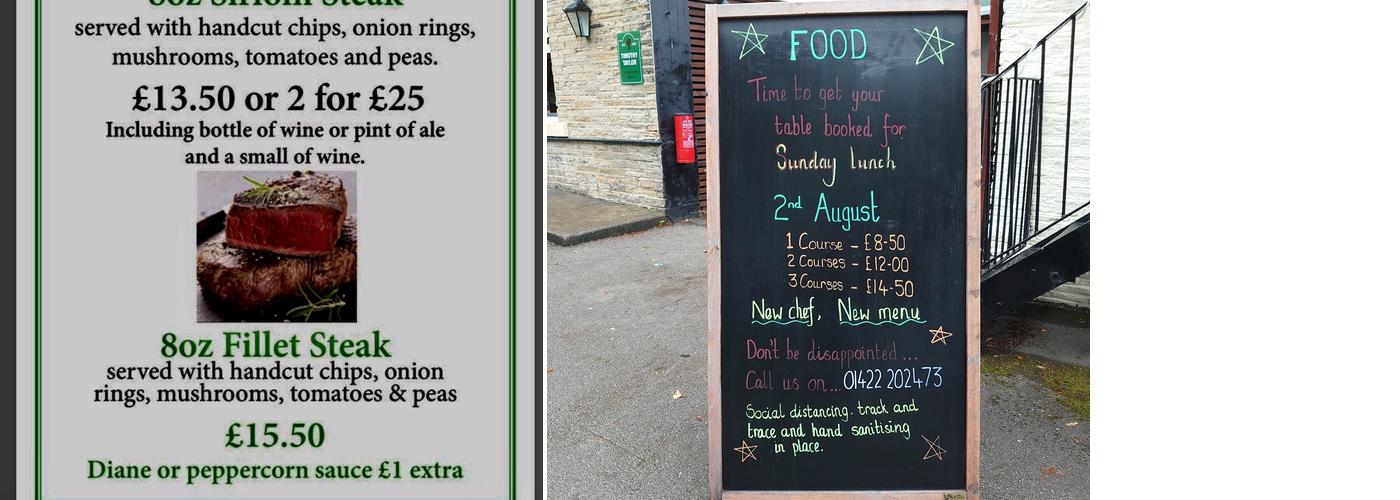 8oz Sirloin Steak
served with handcut chips, onion rings,
mushrooms, tomatoes and peas.
£13.50 or 2 for £25
Including bottle of wine or pint of ale
and a small of wine.
8oz Fillet Steak
served with handcut chips, onion
rings, mushrooms, tomatoes & peas
£15.50
Diane or peppercorn sauce £1 extra
TIMOTHY
TAYLOR
FOOD
Time to get your
table booked for
Sunday lunch
2nd August
1 Course - £8-50
2 Courses - £12-00
3 Courses - £14-50
New chef, New menu
Don't be disappointed...
Call us on... 01422 202473
Social distancing. track and
trace and hand sanitising
in place.